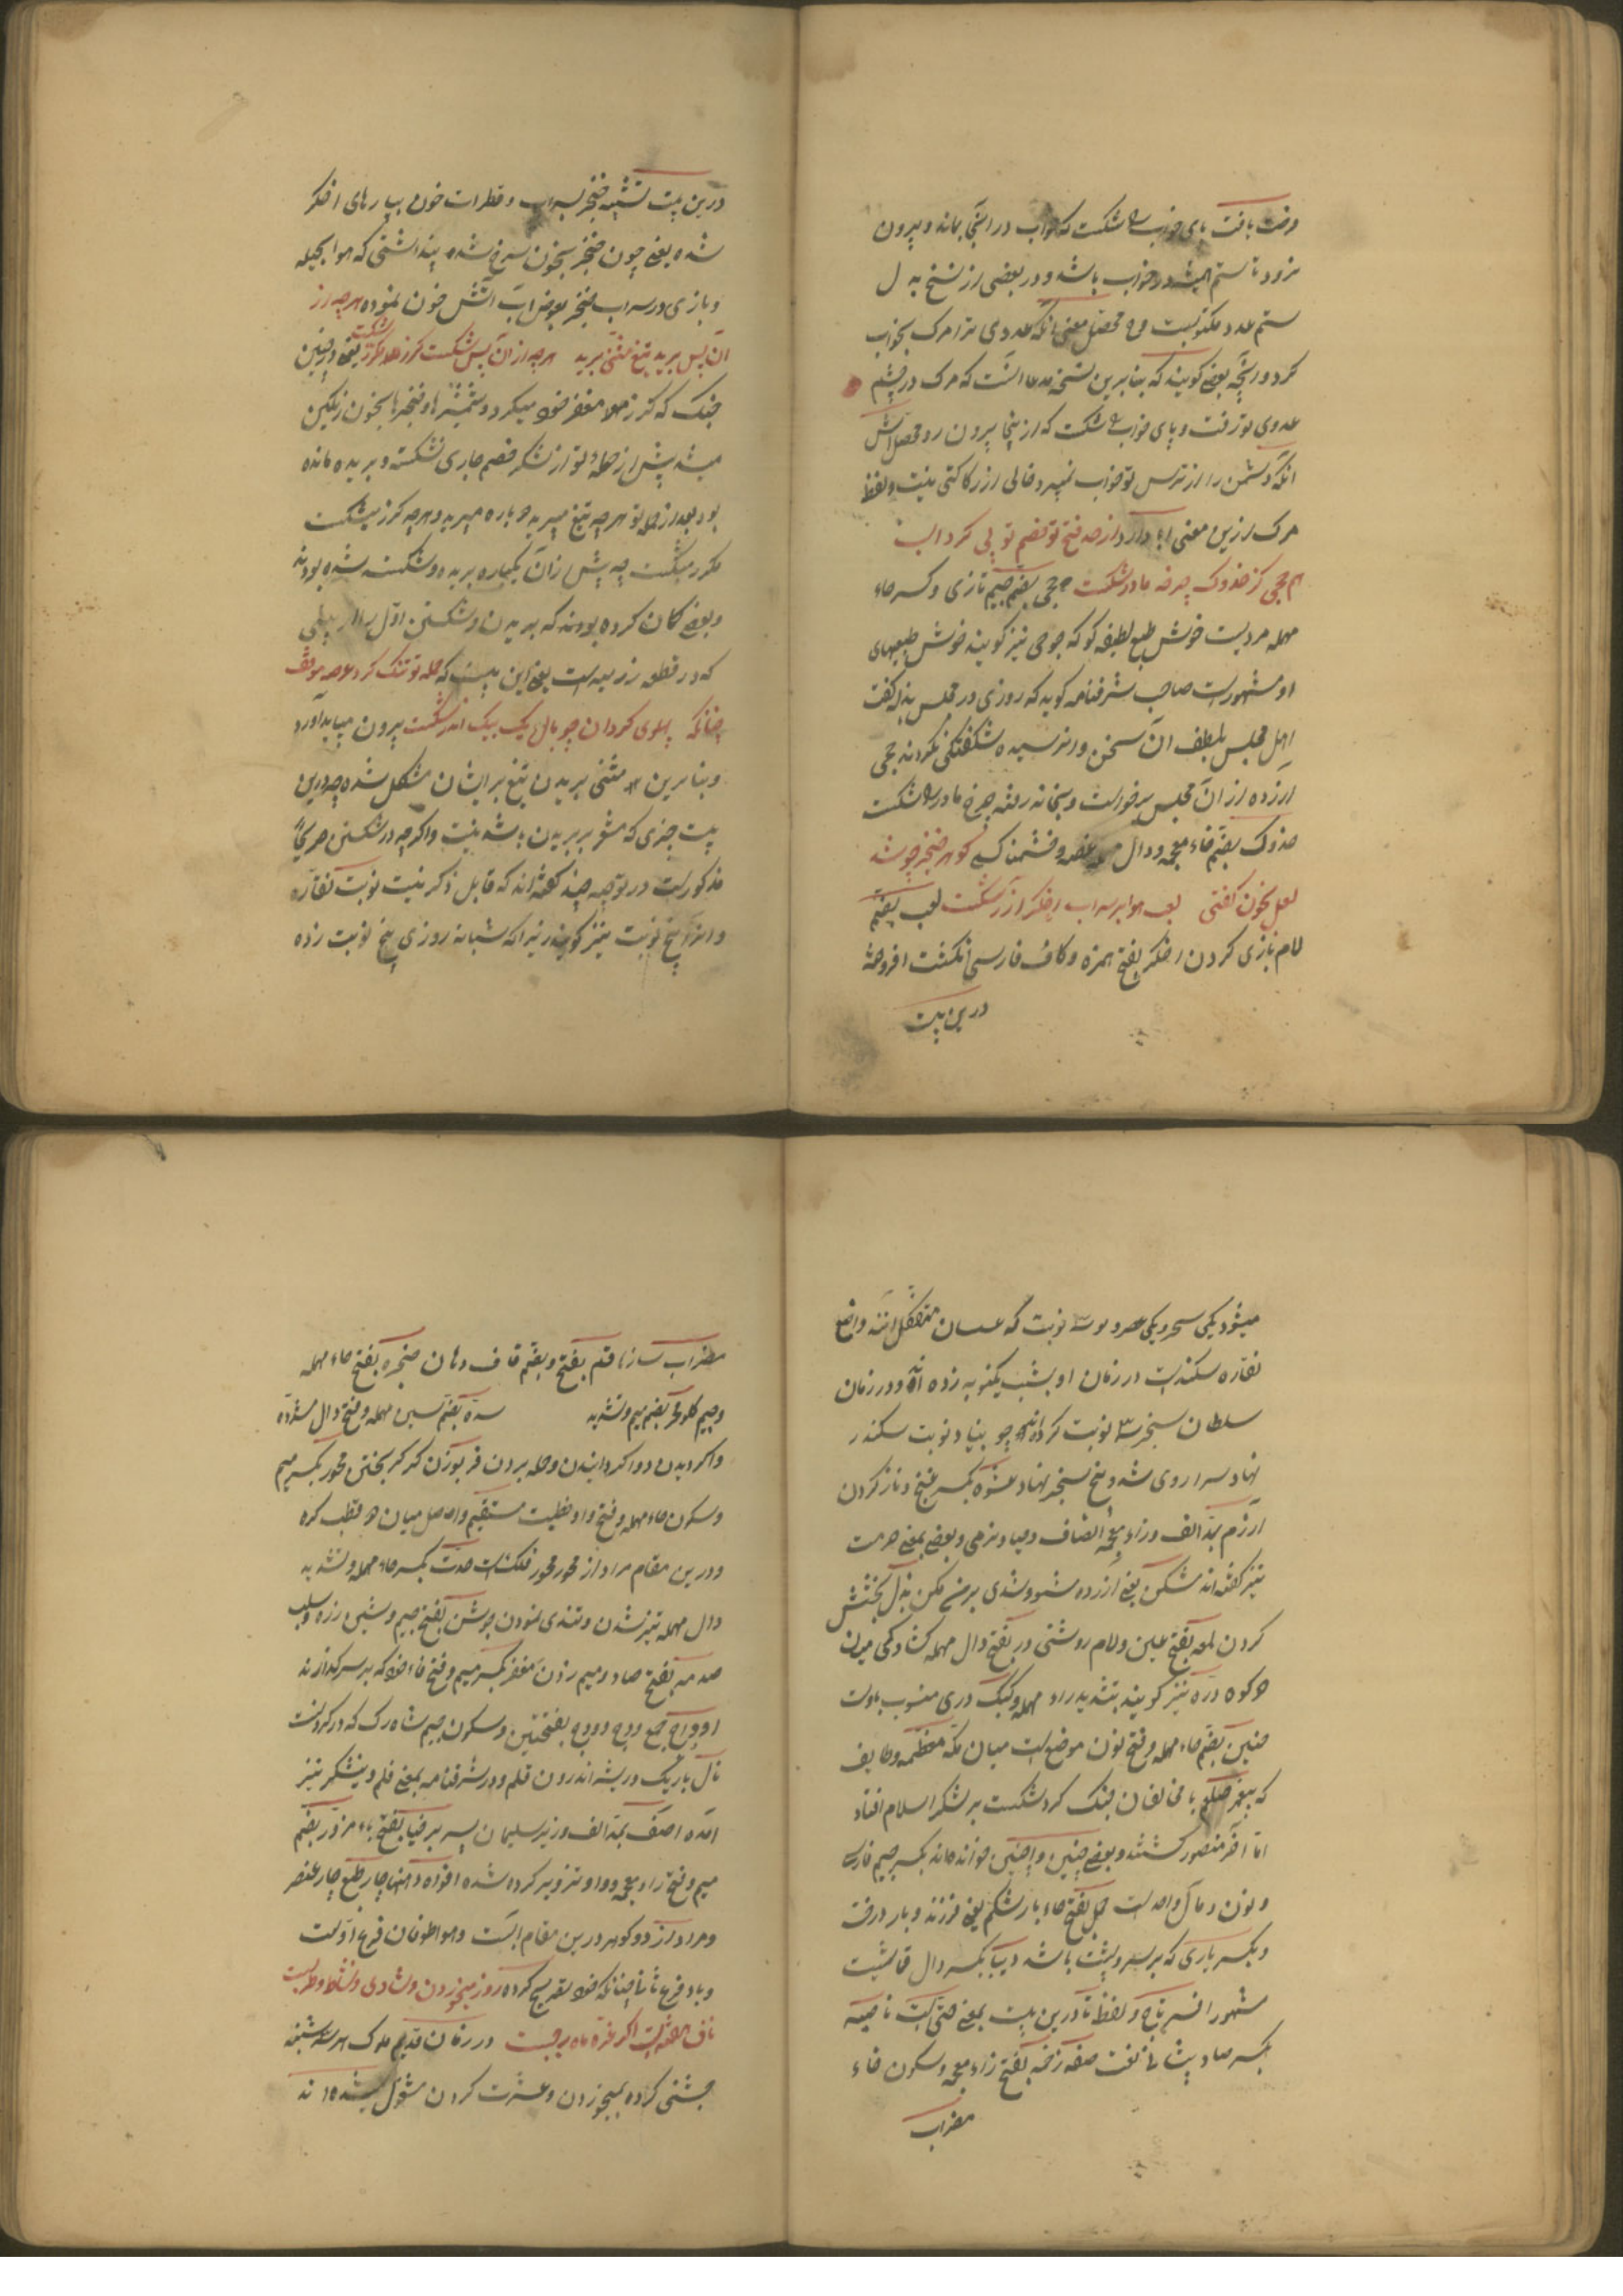 رخت یافت پای خواب را شکست که خواب در آنجا بماند و بیرون
نرود تا ستم همیشه در خواب باشد و در بعضی از نسخ به دل
ستم عدو مکتوبست و محصل معنی آنکه عدوی ترا مرک بخواب
کرد و اینجا بعضی گویند که بنابرین نسخه مدعا آنست که مرک در چشم
عدوی تو رفت و پای خواب را شکست که از اینجا بیرون رود محصلش
آنکه دشمن را از ترس تو خواب نمیبرد و خالی از رکاکتی نیست و لفظ
مرک ازین معنی ابا دارد از صد فتح تو خصم تو پی کرد است
هم جحی کز خدوک چرخه مادر شکست جحی بضم جیم تازی و کسر حاء
مهمله مردیست خوش طبع لطیفه کو که جوحی نیز گویند خوش طبعیهای
او مشهورست صاحب شرفنامه کوید که روزی در مجلس بذله گفت
اهل مجلس بلطف آن سخن وا نرسیده شگفتگی نکردند جحی
آزرده از آن مجلس برخواست و بخانه رفته چرخ مادر را شکست
خدوک بضم خاء معجمه و دال مهمله غصه و خشمناکی گوهر خنجر چو شد
لعل بخون گفتی لعب هوا بر سراب اخکر آذر شکست لعب بضم
لام بازی کردن اخکر بفتح همزه و کاف فارسی انکشت افروخته
درین بیت
درین بیت تشبیه خنجر بسراب و قطرات خون بپارهای اخکر
شده یعنی چون خنجر بخون سرخ شده پنداشتی که هوا بحیله
و بازی در سراب خنجر بعوض آب آتش خون نموده هر چه از
آن پس برید تیغ مثنی برید هر چه از آن پس شکست گرز مکرر شکست یعنی در چنین
جنک که گرز مغفر خود میکرد و شمشیرها و خنجرها بخون رنگین
میشد پیش از حمله تو از لشکر خصم جاری شکسته و بریده مانده
بود بعد از حمله تو هر چه تیغ میبرید دوباره میبرید و هر چه گرز میشکست
مکرر میشکست چه پیش از آن یکباره بریده و شکسته شده بودند
و بعضی گمان کرده بودند که بریدن و شکستن اول
که در قطعه زرمیه است یعنی این بیت که حمله تو تنک کرد عرصه موقف
چنانکه پهلوی گردان چو بال یک بیک اندر شکست بیرون میباید آورد
و بنابرین مثنی بریدن تیغ بر ایشان مشکل شده چه درین
بیت چیزی که مشعر بر بریدن باشد نیست و اگر چه در شکستن صریحاً
مذکورست در توجیه چند گفته اند که قابل ذکر نیست نوبت نقاره
و آنرا پنج نوبت نیز گویند زیرا که شبانه روزی پنج نوبت زده
میشود یکی سحر و یکی عصر و سه نوبت که عسسان متکفل آنند و واضع
نقاره سکندرست در زمان او بشب یکنوبه زده اند و در زمان
سلطان سنجر نوبت گردانیده چو بنیاد نوبت سکندر
نهاد سرا روی شد و پنج سنجر نهاد عشوه بکسر غنج و ناز کردن
آزرم بمد الف و زاء معجمه انصاف و حیا و نرمی و بعضی بمعنی حرمت
نیز گفته اند مشکن یعنی آزرده مشو و تندی بر من مکن بذل بخشش
کردن لمعه بفتح عین و لام روشنی در بفتح دال مهمله گشادگی میان
دو کوه دره نیز گویند بتشدید راء مهمله و کبک دری منسوب باوست
حنین بضم حاء مهمله و فتح نون موضعیست میان مکه معظمه و طایف
که پیغمبر صلعم با مخالفان جنک کرد شکست بر لشکر اسلام افتاد
اما آخر منصور گشتند و بعضی چنین و اینچنین خوانده اند بکسر جیم فارسی
و نون و مآل واحد است حمل بفتح حاء بار شکم یعنی فرزند و بار درخت
و بکسر باری که بر سر و پشت باشد دیبا بکسر دال قماشیست
مشهور افسر تاج و لفظ تا درین بیت بمعنی حتی است ناصیه
بکسر صاد پیشانی لغت صفه زخمه بفتح زاء معجمه و سکون خاء
مضراب
مضراب ساز ناقم بفتح و بضم قاف دهان حنجره بفتح حاء مهمله
و جیم گلو مکرر بضم میم و تشدید سده بضم سین مهمله و فتح دال مشدده
وا گردیدن و وا گردانیدن و حمله بردن فر بوزن کر گریختن محور بکسر میم
و سکون حاء مهمله و فتح واو خطیست مستقیم واصل میان دو قطب کره
و درین مقام مراد از محور محور فلک است حدت بکسر حاء مهمله و تشدید
دال مهمله تیز شدن و تندی نمودن جوشن بفتح جیم و شین زره و سلب
صدمه بفتح صاد و میم زدن مغفر بکسر میم و فتح فاء خود که بر سر گذارند
اوداج جمع ودج و ودج بفتحتین و سکون جیم شاه رک که در گردنست
نال باریک و ریشه اندرون قلم و در شرفنامه بمعنی قلم و نیشکر نیز
آمده آصف بمد الف وزیر سلیمان پسر برخیا بفتح باء مزور بضم
میم و فتح زاء معجمه و واو تزویر کرده شده افواه دهنها چار طبع چار عنصر
و مراد از دو گوهر درین مقام آبست و هوا طوفان فرع اولست
و باد فرع ثانی چنانکه خود تصریح کرده روز میخوردن و شادی و نشاط و طربست
ناف هفته است اگر غره ماه رجبست در زمان قدیم ملوک هر سه شنبه
جشنی کرده بمیخوردن و عشرت کردن مشغول میشده اند